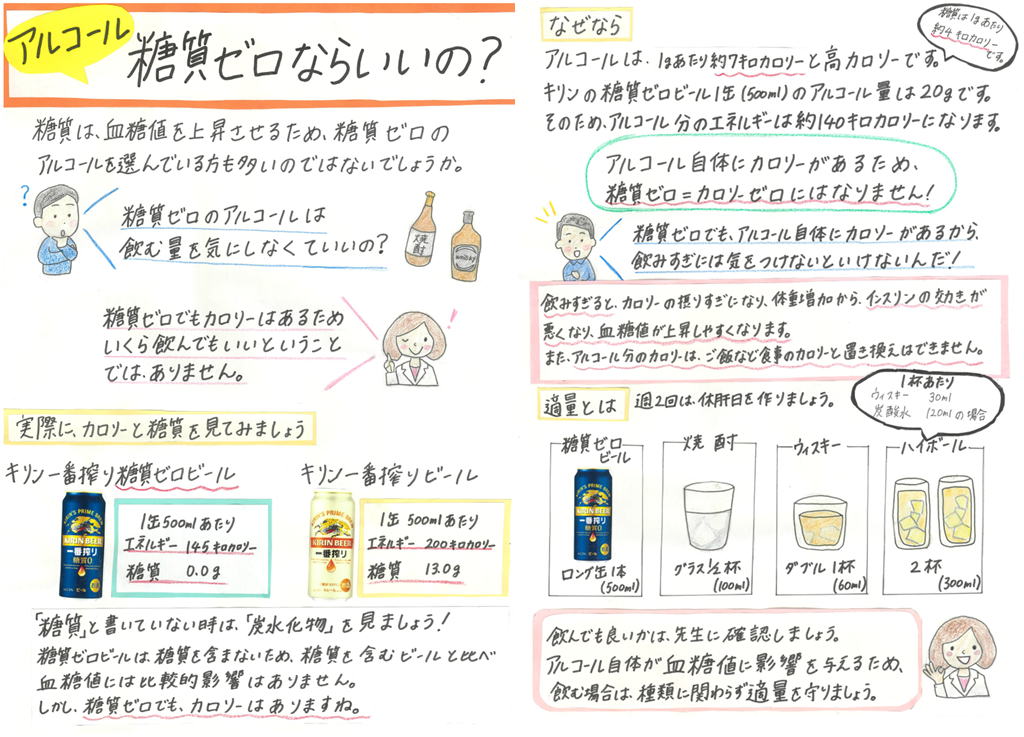 アルコール
糖質ゼロならいいの?
糖質は、血糖値を上昇させるため、糖質ゼロの
アルコールを選んでいる方も多いのではないでしょうか。
?
糖質ゼロのアルコールは
飲む量を気にしなくていいの?
焼酎
Whisky
糖質ゼロでもカロリーはあるため
いくら飲んでもいいということ
では、ありません。
!
実際に、カロリーと糖質を見てみましょう
キリン一番搾り糖質ゼロビール
キリン一番搾りビール
KIRIN'S PRIME BREW
KIRIN BEER
一番搾り
糖質0
1缶500mlあたり
エネルギー 145キロカロリー
糖質 0.0g
KIRIN'S PRIME BREW
KIRIN BEER
一番搾り
1缶500mlあたり
エネルギー 200キロカロリー
糖質 13.0g
「糖質」と書いていない時は、「炭水化物」を見ましょう!
糖質ゼロビールは、糖質を含まないため、糖質を含むビールと比べ
血糖値には比較的影響はありません。
しかし、糖質ゼロでも、カロリーはありますね。
なぜなら
糖質は1gあたり
約4キロカロリー
です。
アルコールは、1gあたり約7キロカロリーと高カロリーです。
キリンの糖質ゼロビール1缶(500ml)のアルコール量は20gです。
そのため、アルコール分のエネルギーは約140キロカロリーになります。
アルコール自体にカロリーがあるため、
糖質ゼロ=カロリーゼロにはなりません!
糖質ゼロでも、アルコール自体にカロリーがあるから、
飲みすぎには気をつけないといけないんだ!
飲みすぎると、カロリーの摂りすぎになり、体重増加から、インスリンの効きが
悪くなり、血糖値が上昇しやすくなります。
また、アルコール分のカロリーは、ご飯など食事のカロリーと置き換えはできません。
適量とは
週2回は、休肝日を作りましょう。
1杯あたり
ウィスキー 30ml
炭酸水 120mlの場合
糖質ゼロ
ビール
KIRIN BEER
一番搾り
糖質0
ロング缶1本
(500ml)
焼酎
グラス1/2杯
(100ml)
ウィスキー
ダブル1杯
(60ml)
ハイボール
2杯
(300ml)
飲んでも良いかは、先生に確認しましょう。
アルコール自体が血糖値に影響を与えるため、
飲む場合は、種類に関わらず適量を守りましょう。